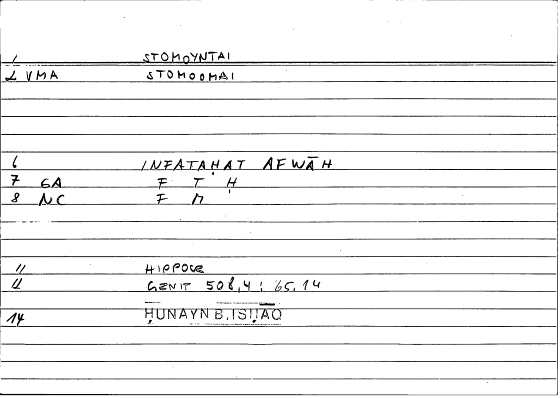 1 STOMOYNTAI
2 VMA STOMOOMAI
6 INFATAḤAT AFWĀH
7 GA F T Ḥ
8 NC F M
11 HIPPOCR
12 GENIT 508,4 : 65,14
14 ḤUNAYN B. ISḤĀQ